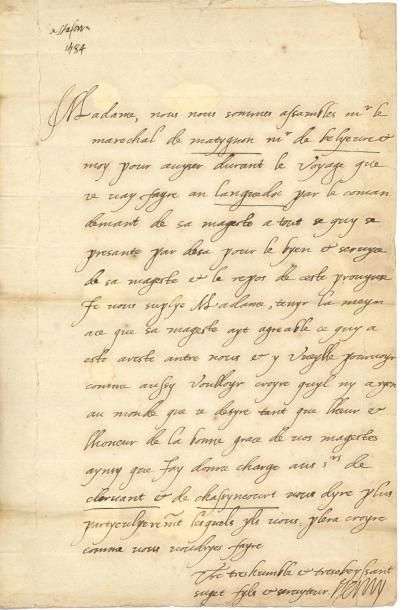 1584
Madame, nous nous sommes assambles mr le
marechal de matygnon mr de belyevre &
moy pour avyser durant le voyage que
je vay fayre an languedoc par le coman
demant de sa mageste a tout se quy se
presante par desa pour le byen & servyse
de sa mageste & le repos de ceste provynse
Je vous suplye Madame, tenyr la mayn
a ce que sa mageste ayt agreable ce quy a
este areste antre nous & y vueylle pourvoyr
comme aussy vouloyr croyre quyl ny a ryen
au monde que je desyre tant que lheur &
lhonneur de la bonne grace de vos magestes
aynsy que jay donne charge aus srs de
clervant & de chassyncourt vous dyre plus
lesquels yls vous plera croyre
comme vous voudryes fayre
Vre tres humble & tres obeyssant
suget fyls & servyteur Henry